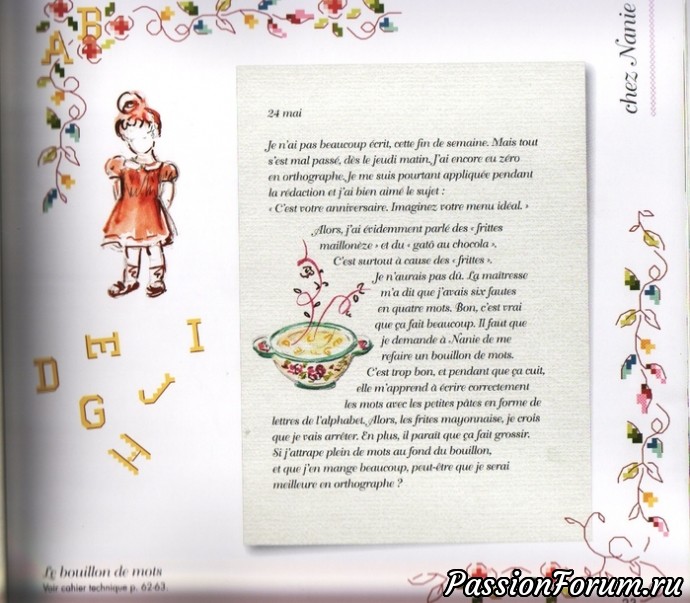 A B
chez Nanie
24 mai
Je n'ai pas beaucoup écrit, cette fin de semaine. Mais tout
s'est mal passé, dès le jeudi matin. J'ai encore eu zéro
en orthographe. Je me suis pourtant appliquée pendant
la rédaction et j'ai bien aimé le sujet :
« C'est votre anniversaire. Imaginez votre menu idéal. »
Alors, j'ai évidemment parlé des « frittes
maillonèze » et du « gatô au chocola ».
C'est surtout à cause des « frittes ».
Je n'aurais pas dû. La maîtresse
m'a dit que j'avais six fautes
en quatre mots. Bon, c'est vrai
que ça fait beaucoup. Il faut que
je demande à Nanie de me
refaire un bouillon de mots.
C'est trop bon, et pendant que ça cuit,
elle m'apprend à écrire correctement
les mots avec les petites pâtes en forme de
lettres de l'alphabet. Alors, les frites mayonnaise, je crois
que je vais arrêter. En plus, il paraît que ça fait grossir.
Si j'attrape plein de mots au fond du bouillon,
et que j'en mange beaucoup, peut-être que je serai
meilleure en orthographe ?
D E I
G J
H
Le bouillon de mots
Voir cahier technique p. 62-63.
PassionForum.ru